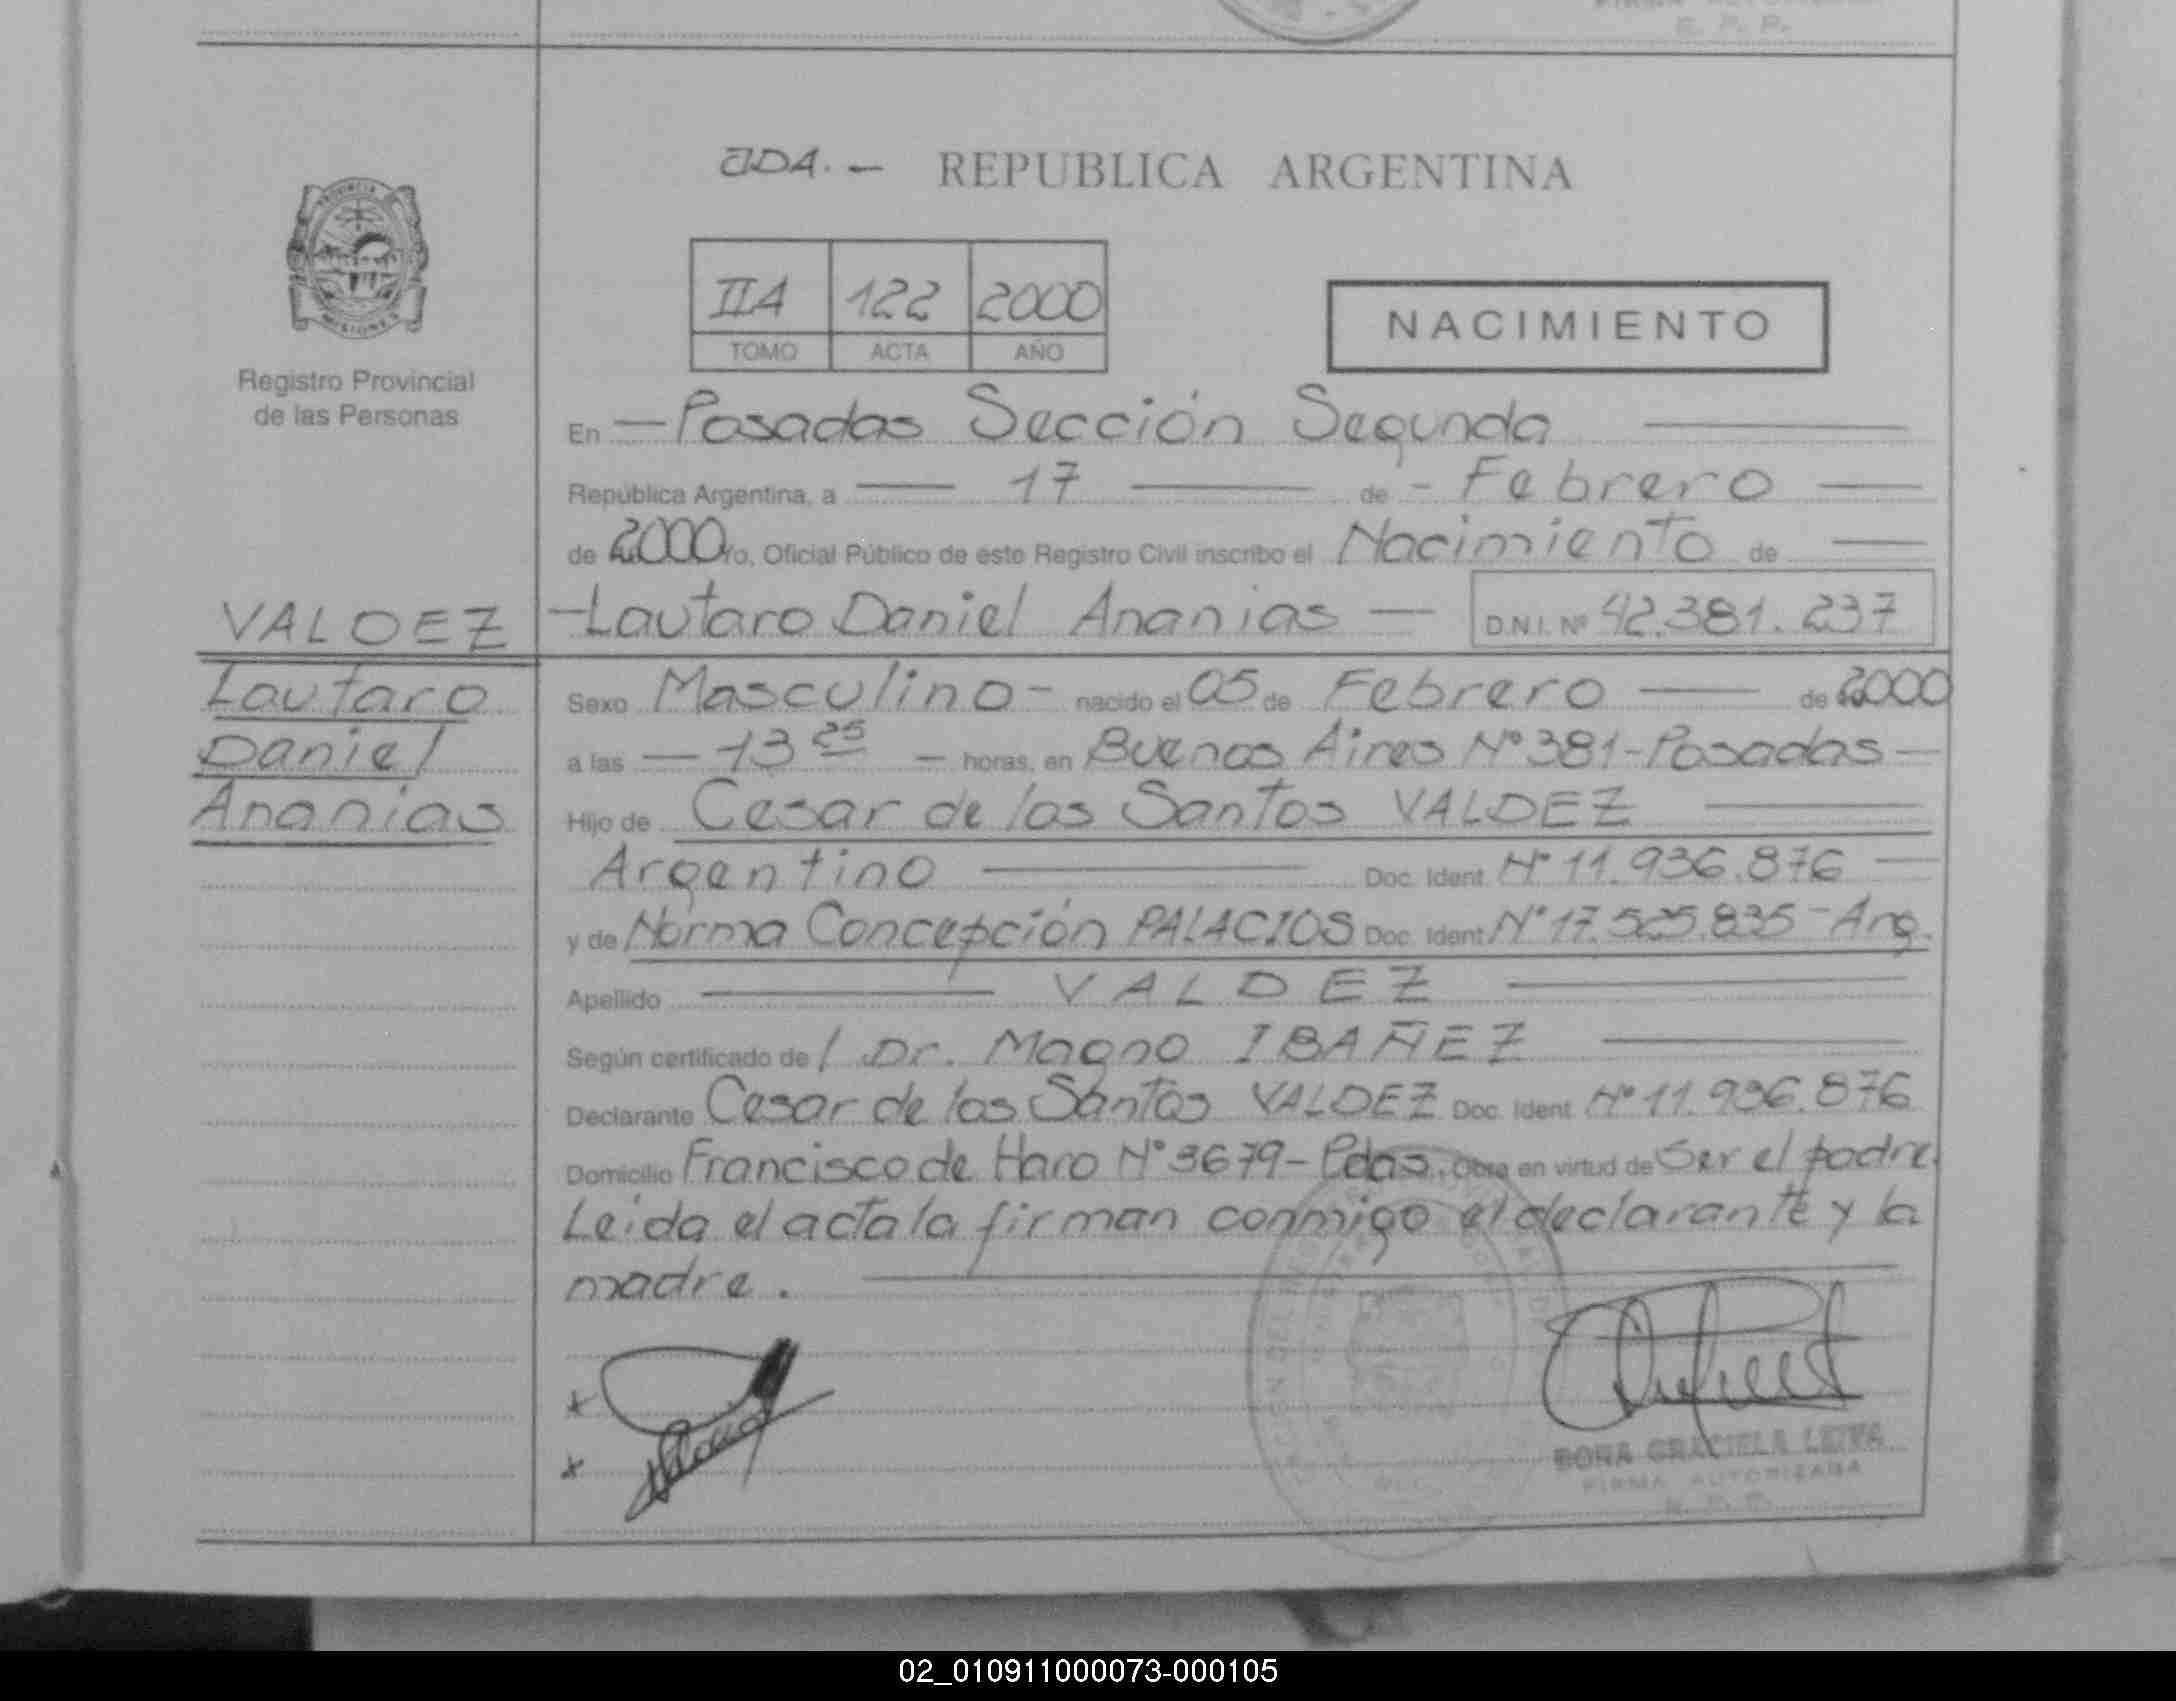 E. P. P.
JDA. - REPUBLICA ARGENTINA
PROVINCIA
MISIONES
Registro Provincial
de las Personas
IIA 122 2000
TOMO ACTA AÑO
NACIMIENTO
En — Posadas Sección Segunda —
República Argentina, a — 17 — de - Febrero —
de 2000 Yo, Oficial Público de este Registro Civil inscribo el Nacimiento de —
VALDEZ
Lautaro
Daniel
Ananias
- Lautaro Daniel Ananias — D.N.I. Nº 42.381.237
Sexo Masculino - nacido el 05 de Febrero — de 2000
a las — 13 25 — horas, en Buenos Aires Nº 381 - Posadas —
Hijo de Cesar de los Santos VALDEZ —
Argentino — Doc. Ident. Nº 11.936.876 —
y de Norma Concepción PALACIOS Doc. Ident. Nº 17.525.835 - Arg.
Apellido — VALDEZ —
Según certificado de / Dr. Magno IBAÑEZ —
Declarante Cesar de los Santos VALDEZ Doc. Ident. Nº 11.936.876
Domicilio Francisco de Haro Nº 3679 - Pdas. Obra en virtud de Ser el padre.
Leida el acta la firman conmigo el declarante y la
madre. —
GRACIELA LEIVA
FIRMA AUTORIZADA
02_010911000073-000105